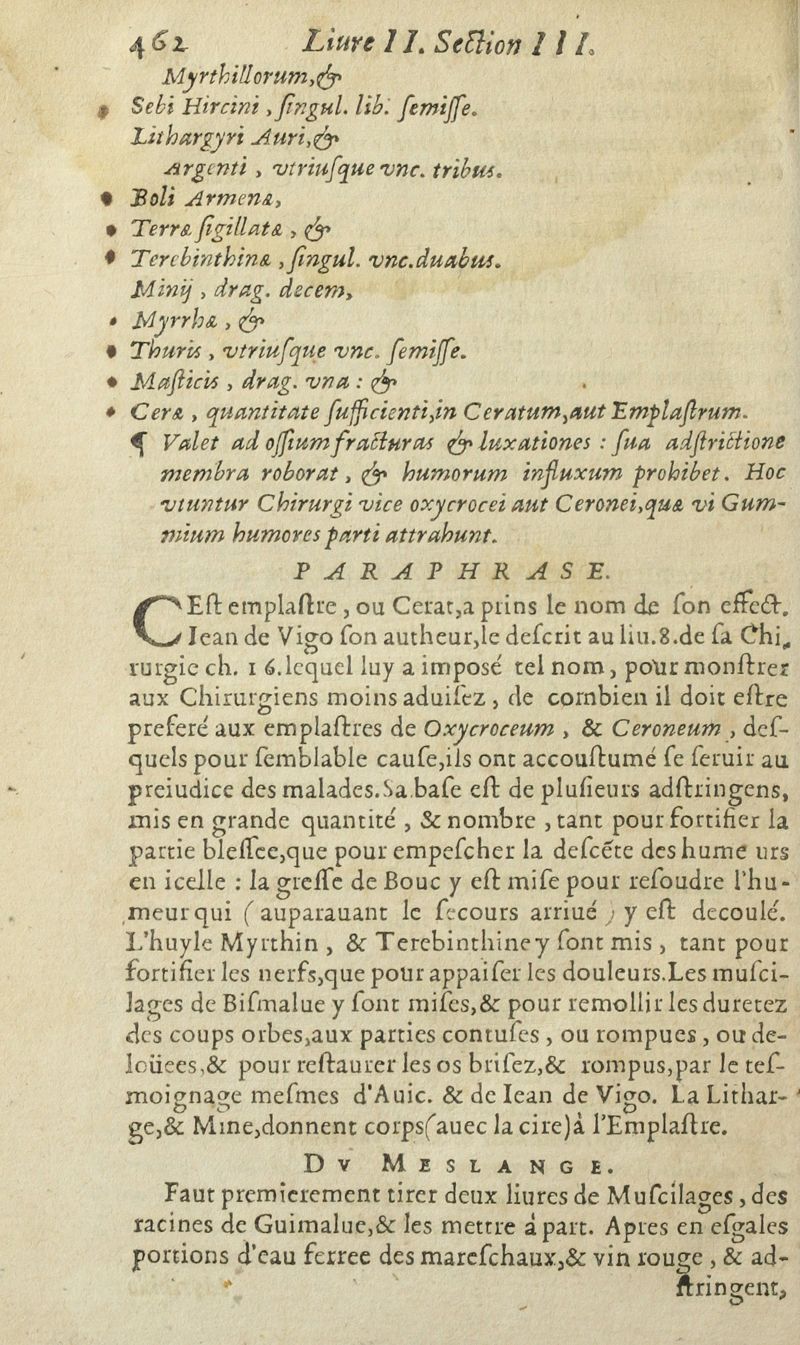 462 Liure II. Section III.
Myrthillorum,&
Sebi Hircini , ſingul. lib. ſemiſſe.
Lithargyri Auri,&
Argenti , vtriuſque vnc. tribus.
Boli Armenæ,
Terræ ſigillatæ , &
Terebinthinæ , ſingul. vnc.duabus.
Minij , drag. decem,
Myrrhæ , &
Thuris , vtriuſque vnc. ſemiſſe.
Maſticis , drag. vna : &
Ceræ , quantitate ſufficienti,in Ceratum,aut Emplaſtrum.
¶ Valet ad oſſium fracturas & luxationes : ſua adſtrictione
membra roborat, & humorum influxum prohibet. Hoc
vtuntur Chirurgi vice oxycrocei aut Ceronei,quæ vi Gum-
mium humores parti attrahunt.
PARAPHRASE.
CEſt emplaſtre , ou Cerat,a prins le nom de ſon effect.
Iean de Vigo ſon autheur,le deſcrit au liu.8.de ſa Chi-
rurgie ch. 16.lequel luy a imposé tel nom, pour monſtrer
aux Chirurgiens moins aduiſez , de combien il doit eſtre
preferé aux emplaſtres de Oxycroceum , & Ceroneum , deſ-
quels pour ſemblable cauſe,ils ont accouſtumé ſe ſeruir au
preiudice des malades.Sa baſe eſt de pluſieurs adſtringens,
mis en grande quantité , & nombre , tant pour fortifier la
partie bleſſee,que pour empeſcher la deſcēte des humeurs
en icelle : la greſſe de Bouc y eſt miſe pour reſoudre l'hu-
meur qui (auparauant le ſecours arriué) y eſt decoulé.
L'huyle Myrthin , & Terebinthine y ſont mis , tant pour
fortifier les nerfs,que pour appaiſer les douleurs.Les muſci-
lages de Biſmalue y ſont miſes,& pour remollir les duretez
des coups orbes,aux parties contuſes , ou rompues , ou de-
loüees,& pour reſtaurer les os briſez,& rompus,par le teſ-
moignage meſmes d'Auic. & de Iean de Vigo. La Lithar-
ge,& Mine,donnent corps(auec la cire)à l'Emplaſtre.
DV MESLANGE.
Faut premierement tirer deux liures de Muſcilages , des
racines de Guimalue,& les mettre à part. Apres en eſgales
portions d'eau ferree des mareſchaux,& vin rouge , & ad-
ſtringent,